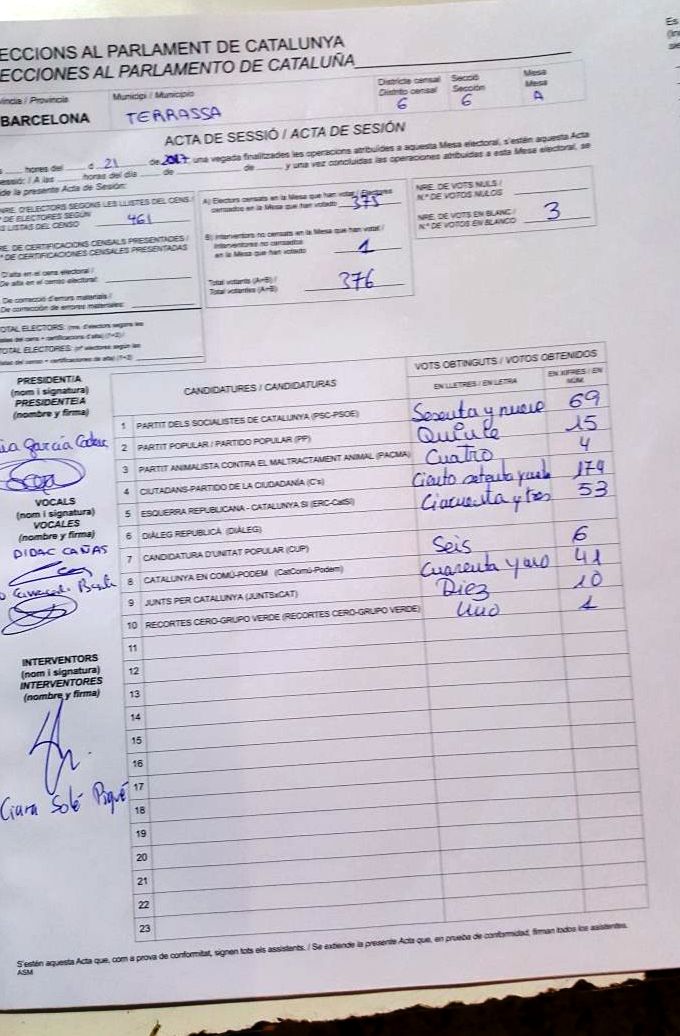 ECCIONS AL PARLAMENT DE CATALUNYA
ECCIONES AL PARLAMENTO DE CATALUÑA
víncia / Provincia
BARCELONA
Municipi / Municipio
TERRASSA
Districte censal
Distrito censal
6
Secció
Sección
6
Mesa
Mesa
A
ACTA DE SESSIÓ / ACTA DE SESIÓN
hores del d 21 de 2017 una vegada finalitzades les operacions atribuïdes a aquesta Mesa electoral, s'estén aquesta Acta
sessió: / A las horas del día de de y una vez concluidas las operaciones atribuidas a esta Mesa electoral, se
de la presente Acta de Sesión:
NRE. D'ELECTORS SEGONS LES LLISTES DEL CENS /
º DE ELECTORES SEGÚN
S LISTAS DEL CENSO 461
RE. DE CERTIFICACIONS CENSALS PRESENTADES /
º DE CERTIFICACIONES CENSALES PRESENTADAS
D'alta en el cens electoral /
De alta en el censo electoral:
De correcció d'errors materials /
De corrección de errores materiales:
OTAL ELECTORS: (nre. d'electors segons les
llistes del cens + certificacions d'alta) (1+2) /
TOTAL ELECTORES: (nº electores según las
listas del censo + certificaciones de alta) (1+2)
A) Electors censats en la Mesa que han votat / Electores
censados en la Mesa que han votado 375
B) Interventors no censats en la Mesa que han votat /
Interventores no censados
en la Mesa que han votado 1
Total votants (A+B) /
Total votantes (A+B) 376
NRE. DE VOTS NULS /
N.º DE VOTOS NULOS
NRE. DE VOTS EN BLANC /
N.º DE VOTOS EN BLANCO 3
PRESIDENT/A
(nom i signatura)
PRESIDENTE/A
(nombre y firma)
García
VOCALS
(nom i signatura)
VOCALES
(nombre y firma)
DIDAC CAÑAS
INTERVENTORS
(nom i signatura)
INTERVENTORES
(nombre y firma)
Ciara Solé Piqué
CANDIDATURES / CANDIDATURAS
VOTS OBTINGUTS / VOTOS OBTENIDOS
EN LLETRES / EN LETRA
EN XIFRES / EN NÚM.
1 PARTIT DELS SOCIALISTES DE CATALUNYA (PSC-PSOE) Sesenta y nueve 69
2 PARTIT POPULAR / PARTIDO POPULAR (PP) Quince 15
3 PARTIT ANIMALISTA CONTRA EL MALTRACTAMENT ANIMAL (PACMA) Cuatro 4
4 CIUTADANS-PARTIDO DE LA CIUDADANÍA (C's) Ciento setenta 174
5 ESQUERRA REPUBLICANA - CATALUNYA SÍ (ERC-CatSí) Cincuenta y tres 53
6 DIÀLEG REPUBLICÀ (DIÀLEG)
7 CANDIDATURA D'UNITAT POPULAR (CUP) Seis 6
8 CATALUNYA EN COMÚ-PODEM (CatComú-Podem) Cuarenta y uno 41
9 JUNTS PER CATALUNYA (JUNTSxCAT) Diez 10
10 RECORTES CERO-GRUPO VERDE (RECORTES CERO-GRUPO VERDE) Uno 1
11
12
13
14
15
16
17
18
19
20
21
22
23
S'estén aquesta Acta que, com a prova de conformitat, signen tots els assistents. / Se extiende la presente Acta que, en prueba de conformidad, firman todos los asistentes.
ASM
Es